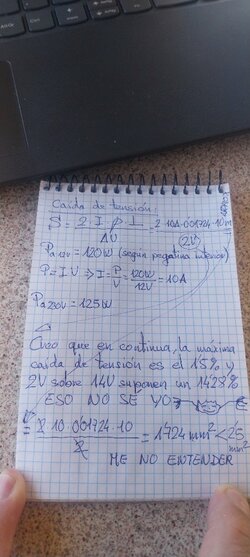 Caida de tensión:
S = 2·I·ρ·L / ΔV = 2·10A·0'01724·10m / (2V)
Pa12V = 120W (según pegatina inferior)
P = I·V ⇒ I = P/V = 120W/12V = 10A
Pa230V = 125W
Creo que en continua, la máxima
caida de tensión es el 15% y
2V sobre 14V suponen un 14'28%
ESO NO SE YO
= 2·10·0'01724·10 / 2 = 1'724 mm² < 2'5 mm²
ME NO ENTENDER